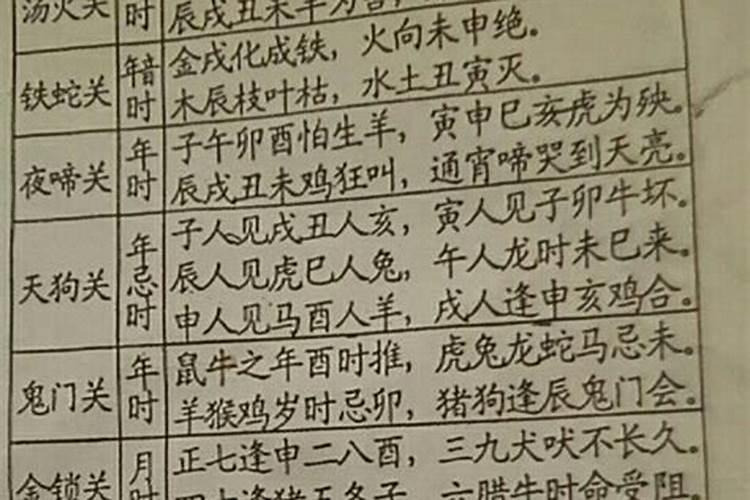 汤火关 时 辰戌丑未羊为
铁蛇关 年音时 金戌化成铁，火向未申绝。
木辰枝叶枯，水土丑寅灭。
夜啼关 年时 子午卯酉怕生羊，寅申巳亥虎为殃。
辰戌丑未鸡狂叫，通宵啼哭到天亮。
天狗关 年忌时 子人见戌丑人亥，寅人见子卯牛坏。
辰人见虎巳人兔，午人龙时未巳来。
申人见马酉人羊，戌人逢申亥鸡合。
鬼门关 年时 鼠牛之年酉时推，虎兔龙蛇马忌未。
羊猴鸡岁时忌卯，猪狗逢辰鬼门会。
金锁关 月时 正七逢申二八酉，三九犬吠不长久。
四七逢猪五冬子，六腊牛时命受阻。